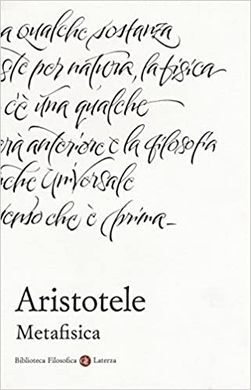 a qualche sostanza
ste per natura, la fisica
c'è una qualche
erà anteriore e la filosofia
che universale
enso che è prima_
Aristotele
Metafisica
Biblioteca Filosofica Laterza